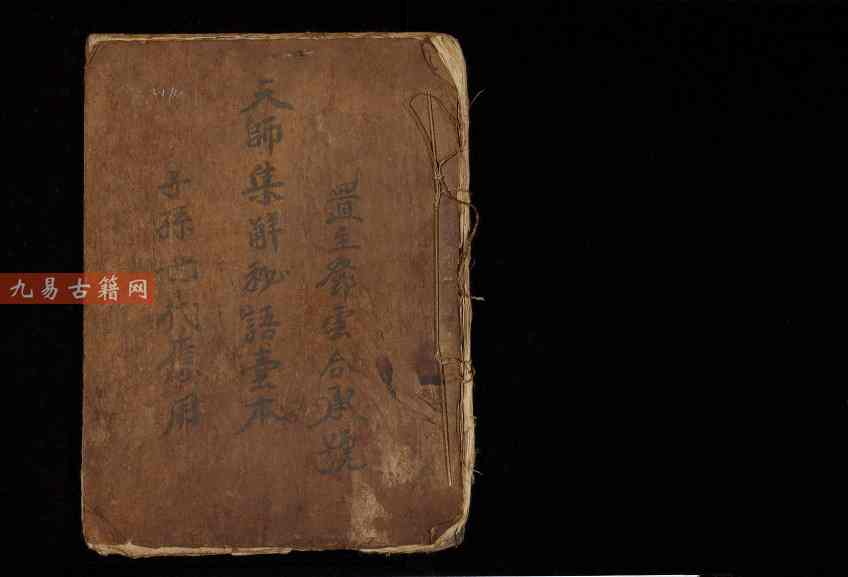 置主鄧雲合承號
天師集解秘語壹本
子孫世代應用
九易古籍网